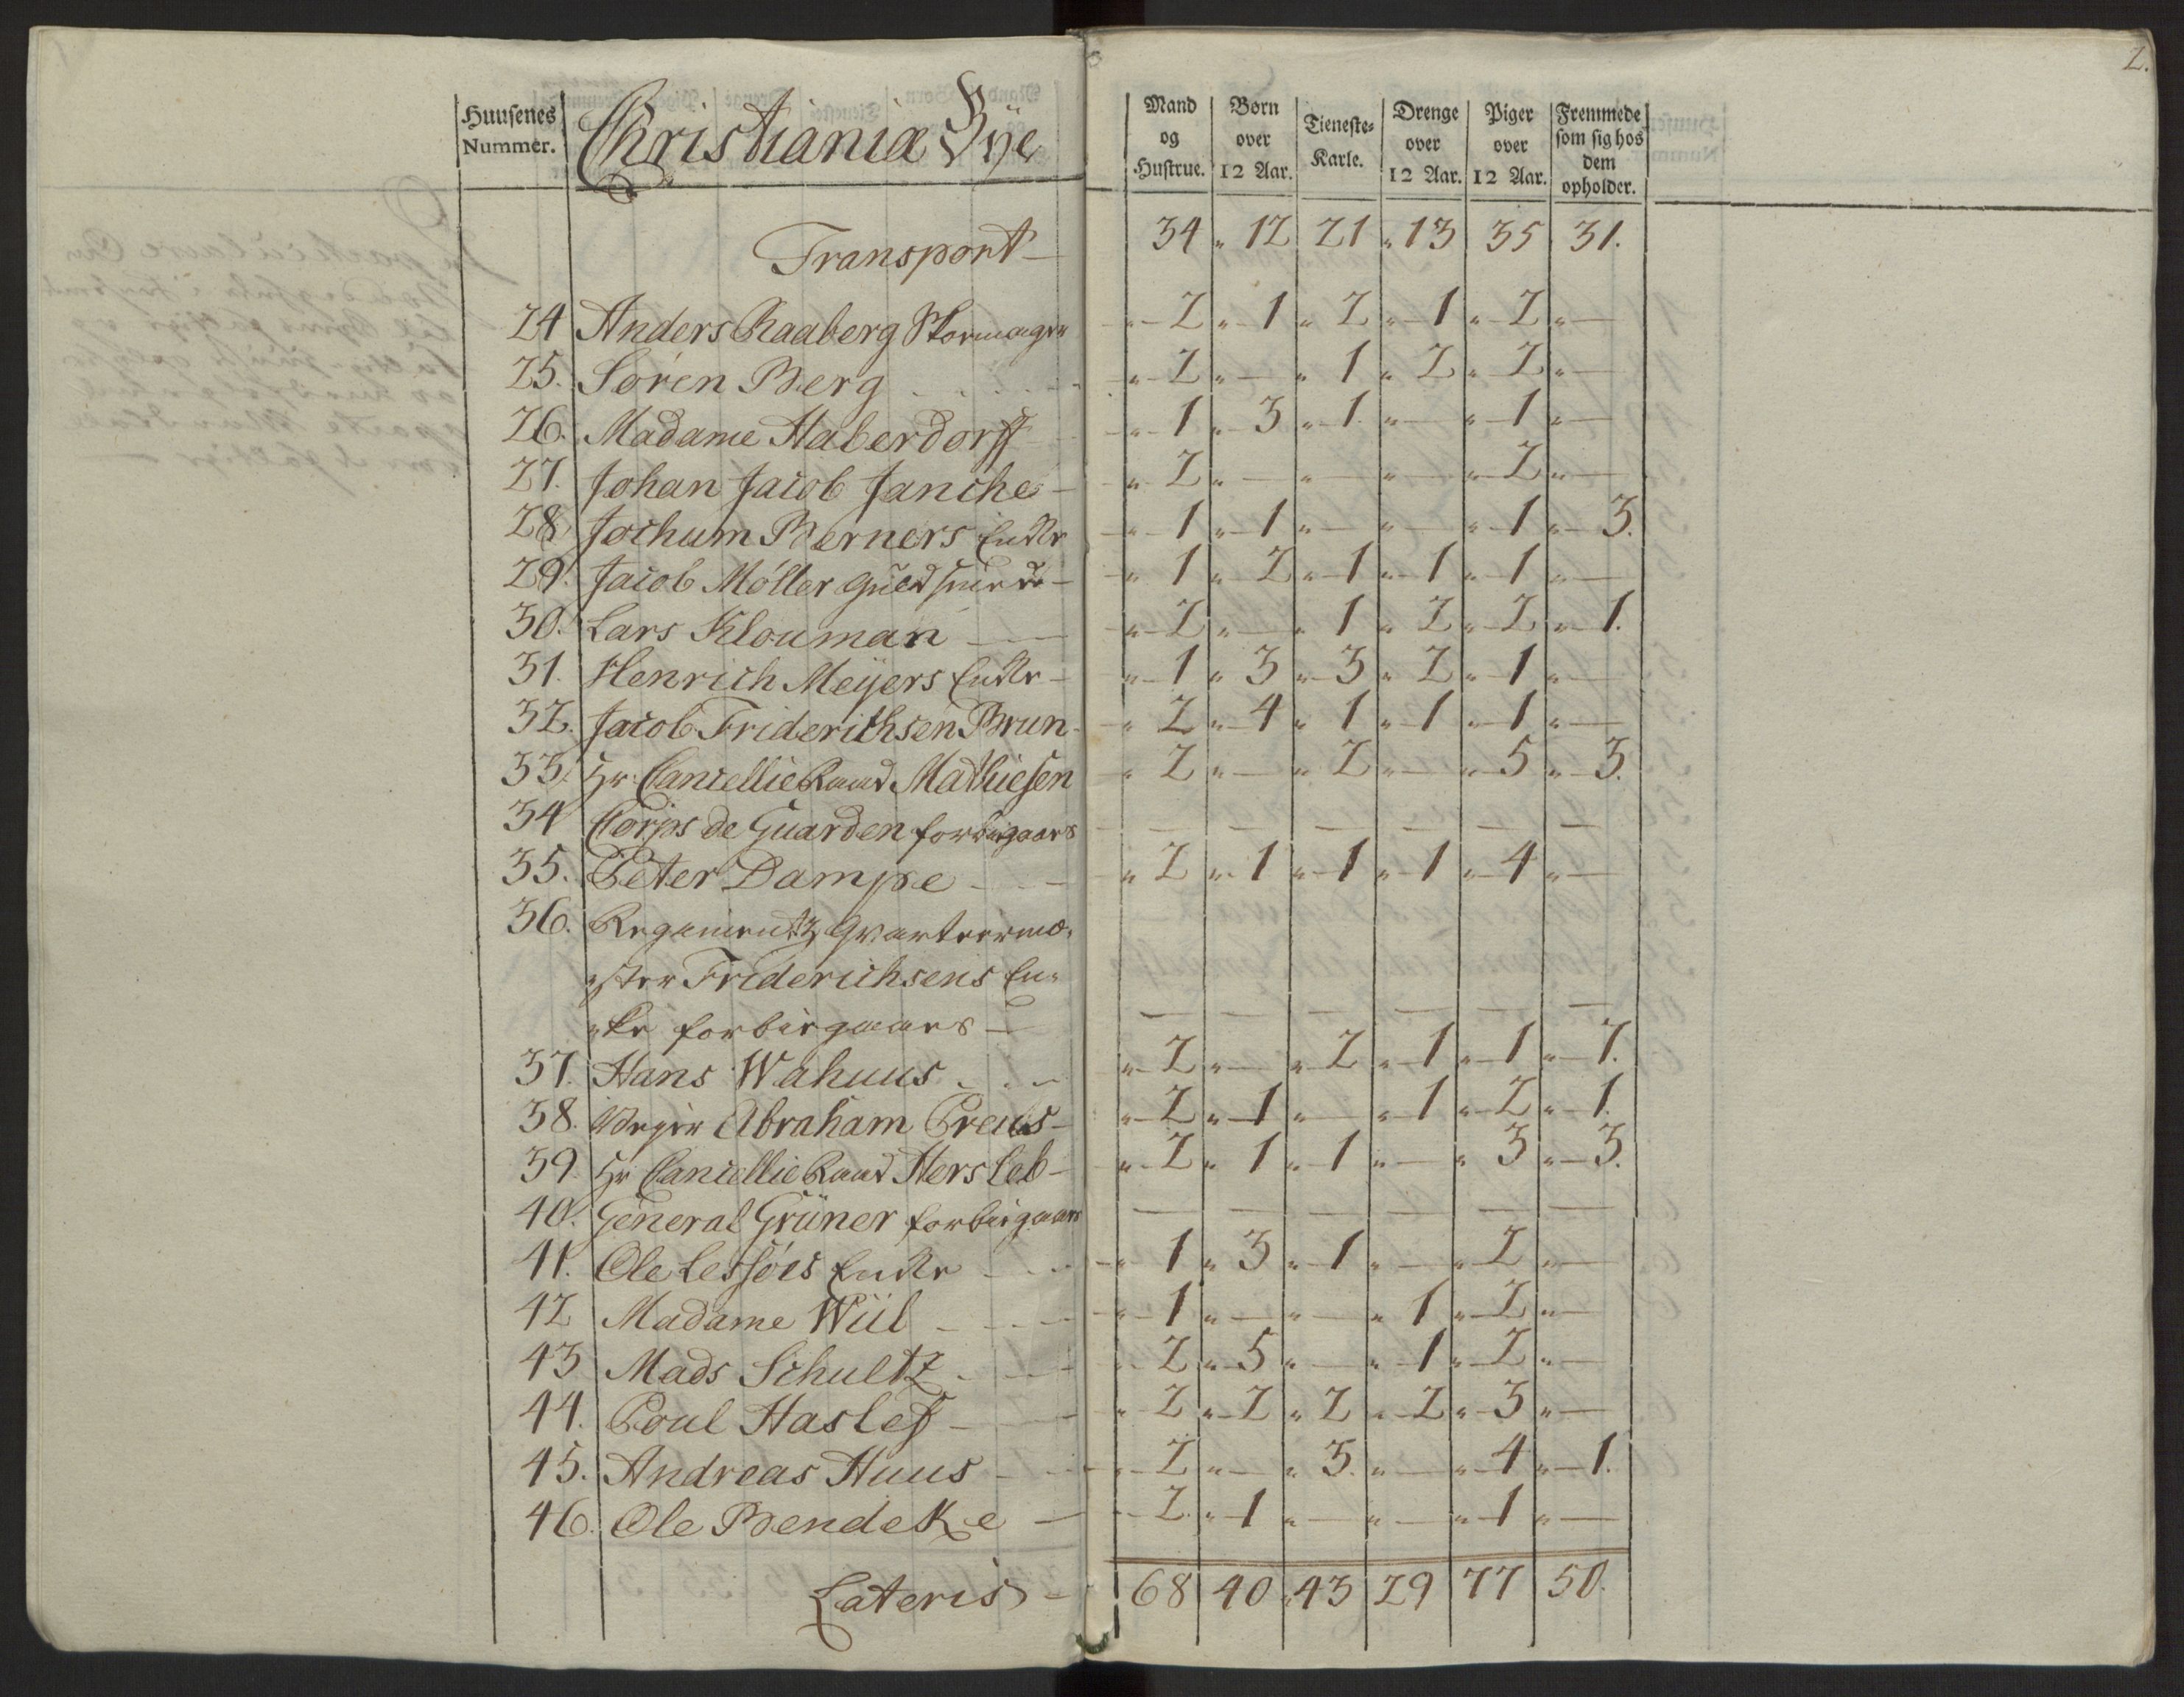 2.
Huusenes Nummer. Christiania Bÿe Mand og Hustrue. Børn over 12 Aar. Tieneste-Karle. Drenge over 12 Aar. Piger over 12 Aar. Fremmede som sig hos dem opholder.
Transport – 34 12 21 13 35 31.
24 Anders Raaberg Skomager 2 1 2 1 2 –
25. Søren Berg 2 – 1 2 2 –
26. Madame Haberdorff 1 3 1 – 1 –
27. Johan Jacob Janche – 2 – – – 2 –
28 Jochum Berners Encke 1 1 – – 1 3.
29. Jacob Möller Guldsmed – 1 2 1 1 1 –
30. Lars Klouman – 2 – 1 2 2 1.
31. Henrich Meÿers Encke – 1 3 3 2 1 –
32. Jacob Friderichsen Brun – 2 4 1 1 1 –
33. Hr: CancellieRaad Mathiesen 2 – 2 – 5 3.
34 Corps de Guarden forbigaars – – – – – –
35. Peter Dampe – 2 1 1 1 4 –
36. Regimentz Qvarteerme-
ster Friderichsens En-
ke forbigaaes – – – – – – –
37. Hans Wahuus 2 – 2 1 1 7.
38. Abraham Preus – 2 1 – 1 2 1.
39. Hr CancellieRaad Hersleb – 2 1 1 – 3 3.
40. General Grüner forbigaaes – – – – – –
41. Ole Lessøes Encke 1 3 1 – 2 –
42 Madame Wiil – 1 – – 1 2 –
43 Mads Schultz 2 5 – 1 2 –
44. Poul Haslef – 2 2 2 2 3 –
45. Andreas Huus – 2 – 3. – 4 1.
46. Ole Bendeke – 2. 1 – – 1 –
Lateris – 68 40 43 29 77 50.